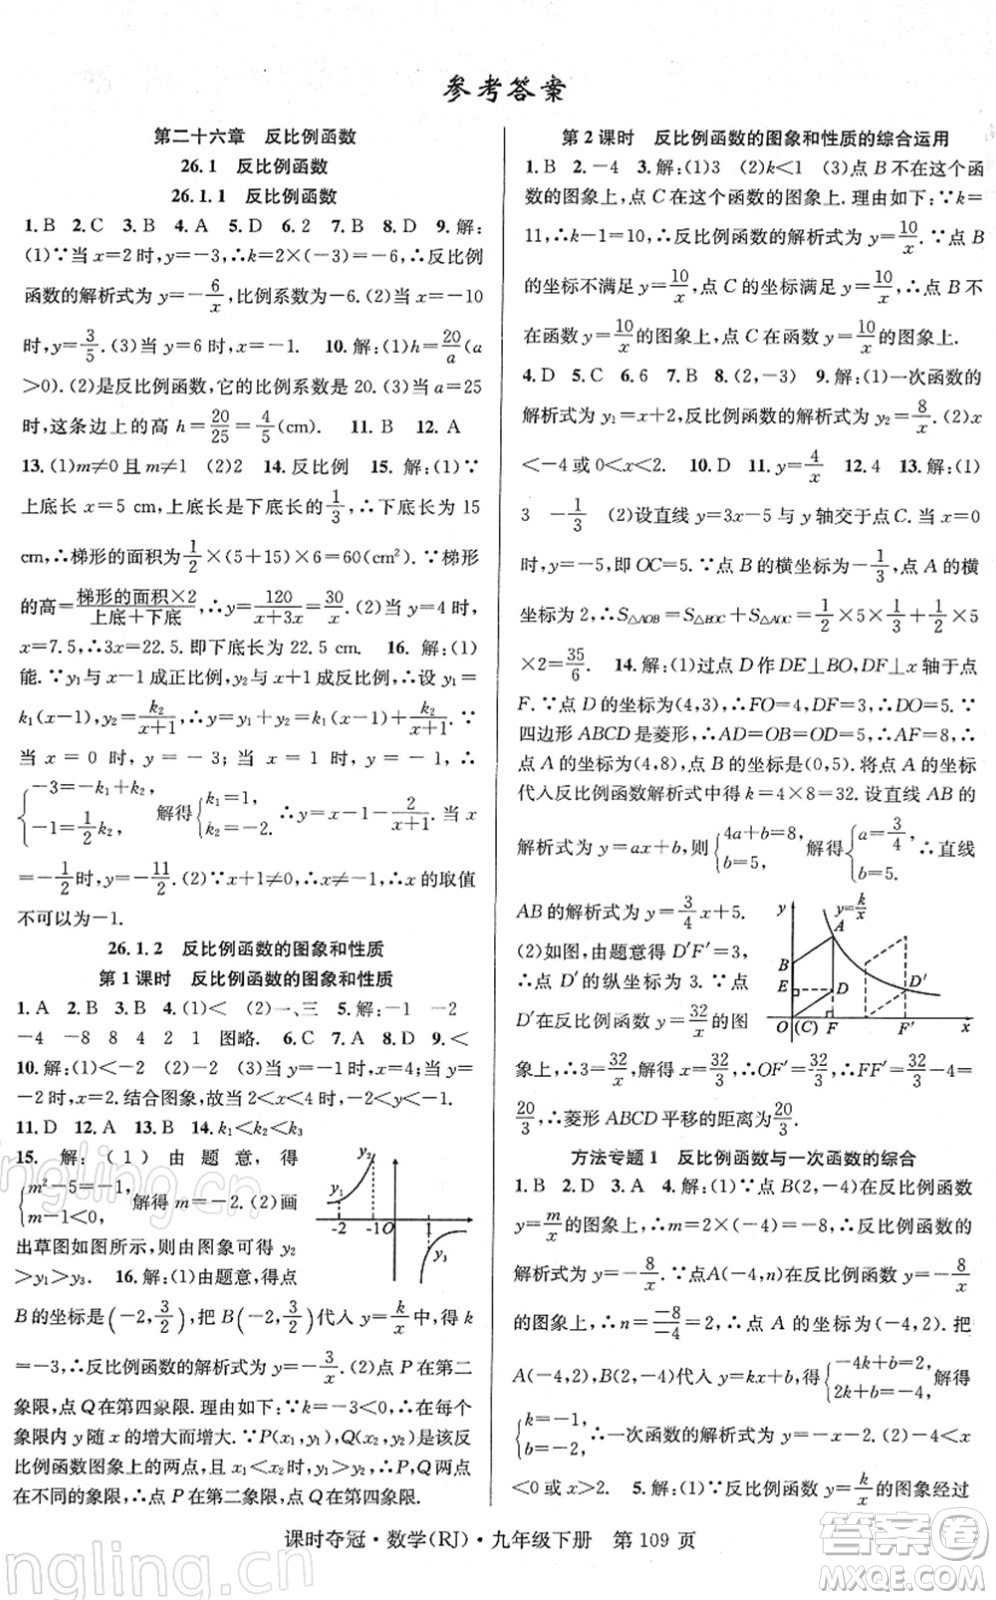 参考答案
第二十六章 反比例函数
26.1 反比例函数
26.1.1 反比例函数
1.B 2.C 3.B 4.A 5.D 6.2 7.B 8.D 9.解:
(1)∵当x=2时,y=-3,∴k=2×(-3)=-6,∴反比例
函数的解析式为y=-6/x,比例系数为-6.(2)当x=-10
时,y=3/5.(3)当y=6时,x=-1. 10.解:(1)h=20/a(a
>0).(2)是反比例函数,它的比例系数是20.(3)当a=25
时,这条边上的高h=20/25=4/5(cm). 11.B 12.A
13.(1)m≠0且m≠1 (2)2 14.反比例 15.解:(1)∵
上底长x=5 cm,上底长是下底长的1/3,∴下底长为15
cm,∴梯形的面积为1/2×(5+15)×6=60(cm²).∵梯形
的高=梯形的面积×2/上底+下底,∴y=120/x+3x=30/x.(2)当y=4时,
x=7.5,∴3x=22.5.即下底长为22.5 cm. 16.解:(1)
能.∵y₁与x-1成正比例,y₂与x+1成反比例,∴设y₁=
k₁(x-1),y₂=k₂/x+1.∵y=y₁+y₂,∴y=k₁(x-1)+k₂/x+1.∵
当x=0时,y=-3,当x=1时,y=-1,∴
{-3=-k₁+k₂, -1=1/2k₂, 解得{k₁=1, k₂=-2. ∴y=x-1-2/x+1.当x
=-1/2时,y=-11/2.(2)∵x+1≠0,∴x≠-1,∴x的取值
不可以为-1.
26.1.2 反比例函数的图象和性质
第1课时 反比例函数的图象和性质
1.A 2.B 3.B 4.(1)< (2)一、三 5.解:-1 -2
-4 -8 8 4 2 1 图略. 6.C 7.A 8.D 9.<
10.解:(1)<-2 (2)<-2 (3)当y=-1时,x=4,当y=
-2时,x=2.结合图象,故当2<x<4时,-2<y<-1.
11.D 12.A 13.B 14.k₁<k₂<k₃
15. 解:(1)由题意,得
{m²-5=-1, m-1<0, 解得m=-2.(2)画
出草图如图所示,由图象可得y₂
>y₁>y₃. 16.解:(1)由题意,得点
y₂
y₁
-2 -1 O 1
y₃
B的坐标是(-2,3/2),把B(-2,3/2)代入y=k/x中,得
k=-3,∴反比例函数的解析式为y=-3/x.(2)点P在第二
象限,点Q在第四象限.理由如下:∵k=-3<0,∴在每个
象限内y随x的增大而增大.∵P(x₁,y₁),Q(x₂,y₂)是该反
比例函数图象上的两点,且x₁<x₂时,y₁>y₂,∴P,Q两点
在不同的象限,∴点P在第二象限,点Q在第四象限.
第2课时 反比例函数的图象和性质的综合运用
1.B 2.-4 3.解:(1)3 (2)k<1 (3)点B不在这个函
数的图象上,点C在这个函数的图象上.理由如下:∵k=
11,∴k-1=10,∴反比例函数的解析式为y=10/x.∵点B
的坐标不满足y=10/x,点C的坐标满足y=10/x,∴点B不
在函数y=10/x的图象上,点C在函数y=10/x的图象上.
4.D 5.C 6.6 7.B 8.(2,-3) 9.解:(1)一次函数的
解析式为y₁=x+2,反比例函数的解析式为y₂=8/x.(2)x
<-4或0<x<2. 10.D 11.y=4/x 12.4 13.解:(1)
3 -1/3 (2)设直线y=3x-5与y轴交于点C.当x=0
时,y=-5,即OC=5.∵点B的横坐标为-1/3,点A的横
坐标为2,∴S△AOB=S△BOC+S△AOC=1/2×5×1/3+1/2×5
×2=35/6. 14.解:(1)过点D作DE⊥BO,DF⊥x轴于点
F.∵点D的坐标为(4,3),∴FO=4,DF=3,∴DO=5.∵
四边形ABCD是菱形,∴AD=OB=OD=5,∴AF=8,∴
点A的坐标为(4,8),点B的坐标是(0,5).将点A的坐标
代入反比例函数解析式中得k=4×8=32.设直线AB的
解析式为y=ax+b,则{4a+b=8, b=5, 解得{a=3/4, b=5. ∴直线
AB的解析式为y=3/4x+5.
(2)如图,由题意得D′F′=3,
∴点D′的纵坐标为3.∵点
D′在反比例函数y=32/x的图
y
y=k/x
A
B
E
D
D′
O (C) F F′ x
象上,∴3=32/x,解得x=32/3,即OF′=32/3,∴FF′=32/3-4=
20/3,∴菱形ABCD平移的距离为20/3.
方法专题1 反比例函数与一次函数的综合
1.B 2.D 3.A 4.解:(1)∵点B(2,-4)在反比例函数
y=m/x的图象上,∴m=2×(-4)=-8,∴反比例函数的
解析式为y=-8/x.∵点A(-4,n)在反比例函数y=-8/x
的图象上,∴n=-8/-4=2,∴点A的坐标为(-4,2).把
A(-4,2),B(2,-4)代入y=kx+b,得{-4k+b=2, 2k+b=-4, 解得
{k=-1, b=-2, ∴一次函数的解析式为y=-x-2.(2)-4<x
<0或x>2. 5.解:(1)∵反比例函数y=k/x的图象经过
课时夺冠·数学(RJ)·九年级下册 第109页